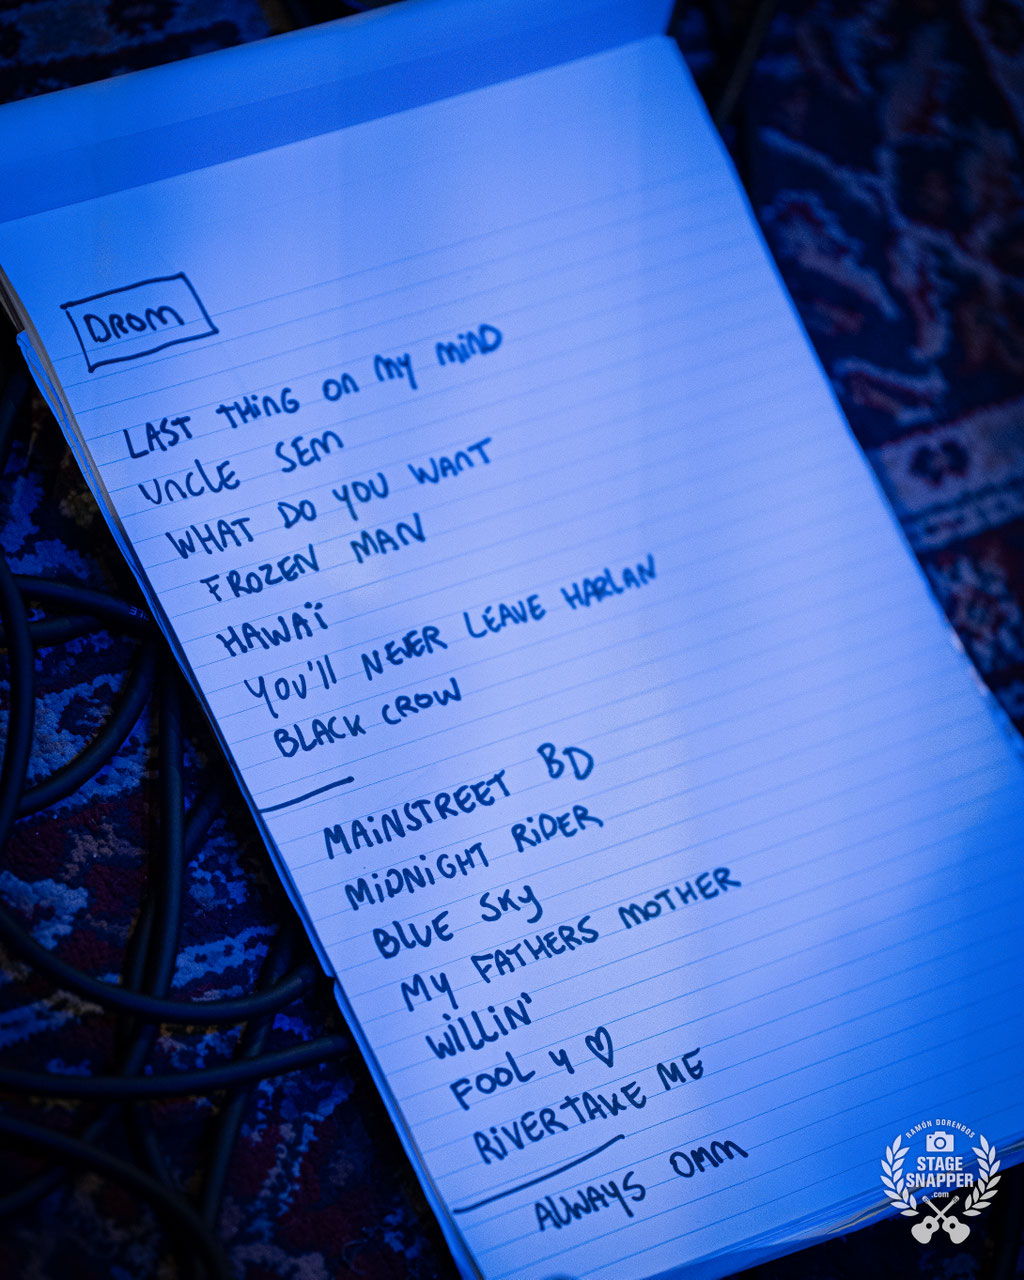 DROM
LAST THING ON MY MIND
UNCLE SEM
WHAT DO YOU WANT
FROZEN MAN
HAWAÏ
YOU'LL NEVER LEAVE HARLAN
BLACK CROW
MAINSTREET BD
MIDNIGHT RIDER
BLUE SKY
MY FATHERS MOTHER
WILLIN'
FOOL 4 ♡
RIVER TAKE ME
ALWAYS OMM
RAMÓN DORENBOS
STAGE
SNAPPER
.com